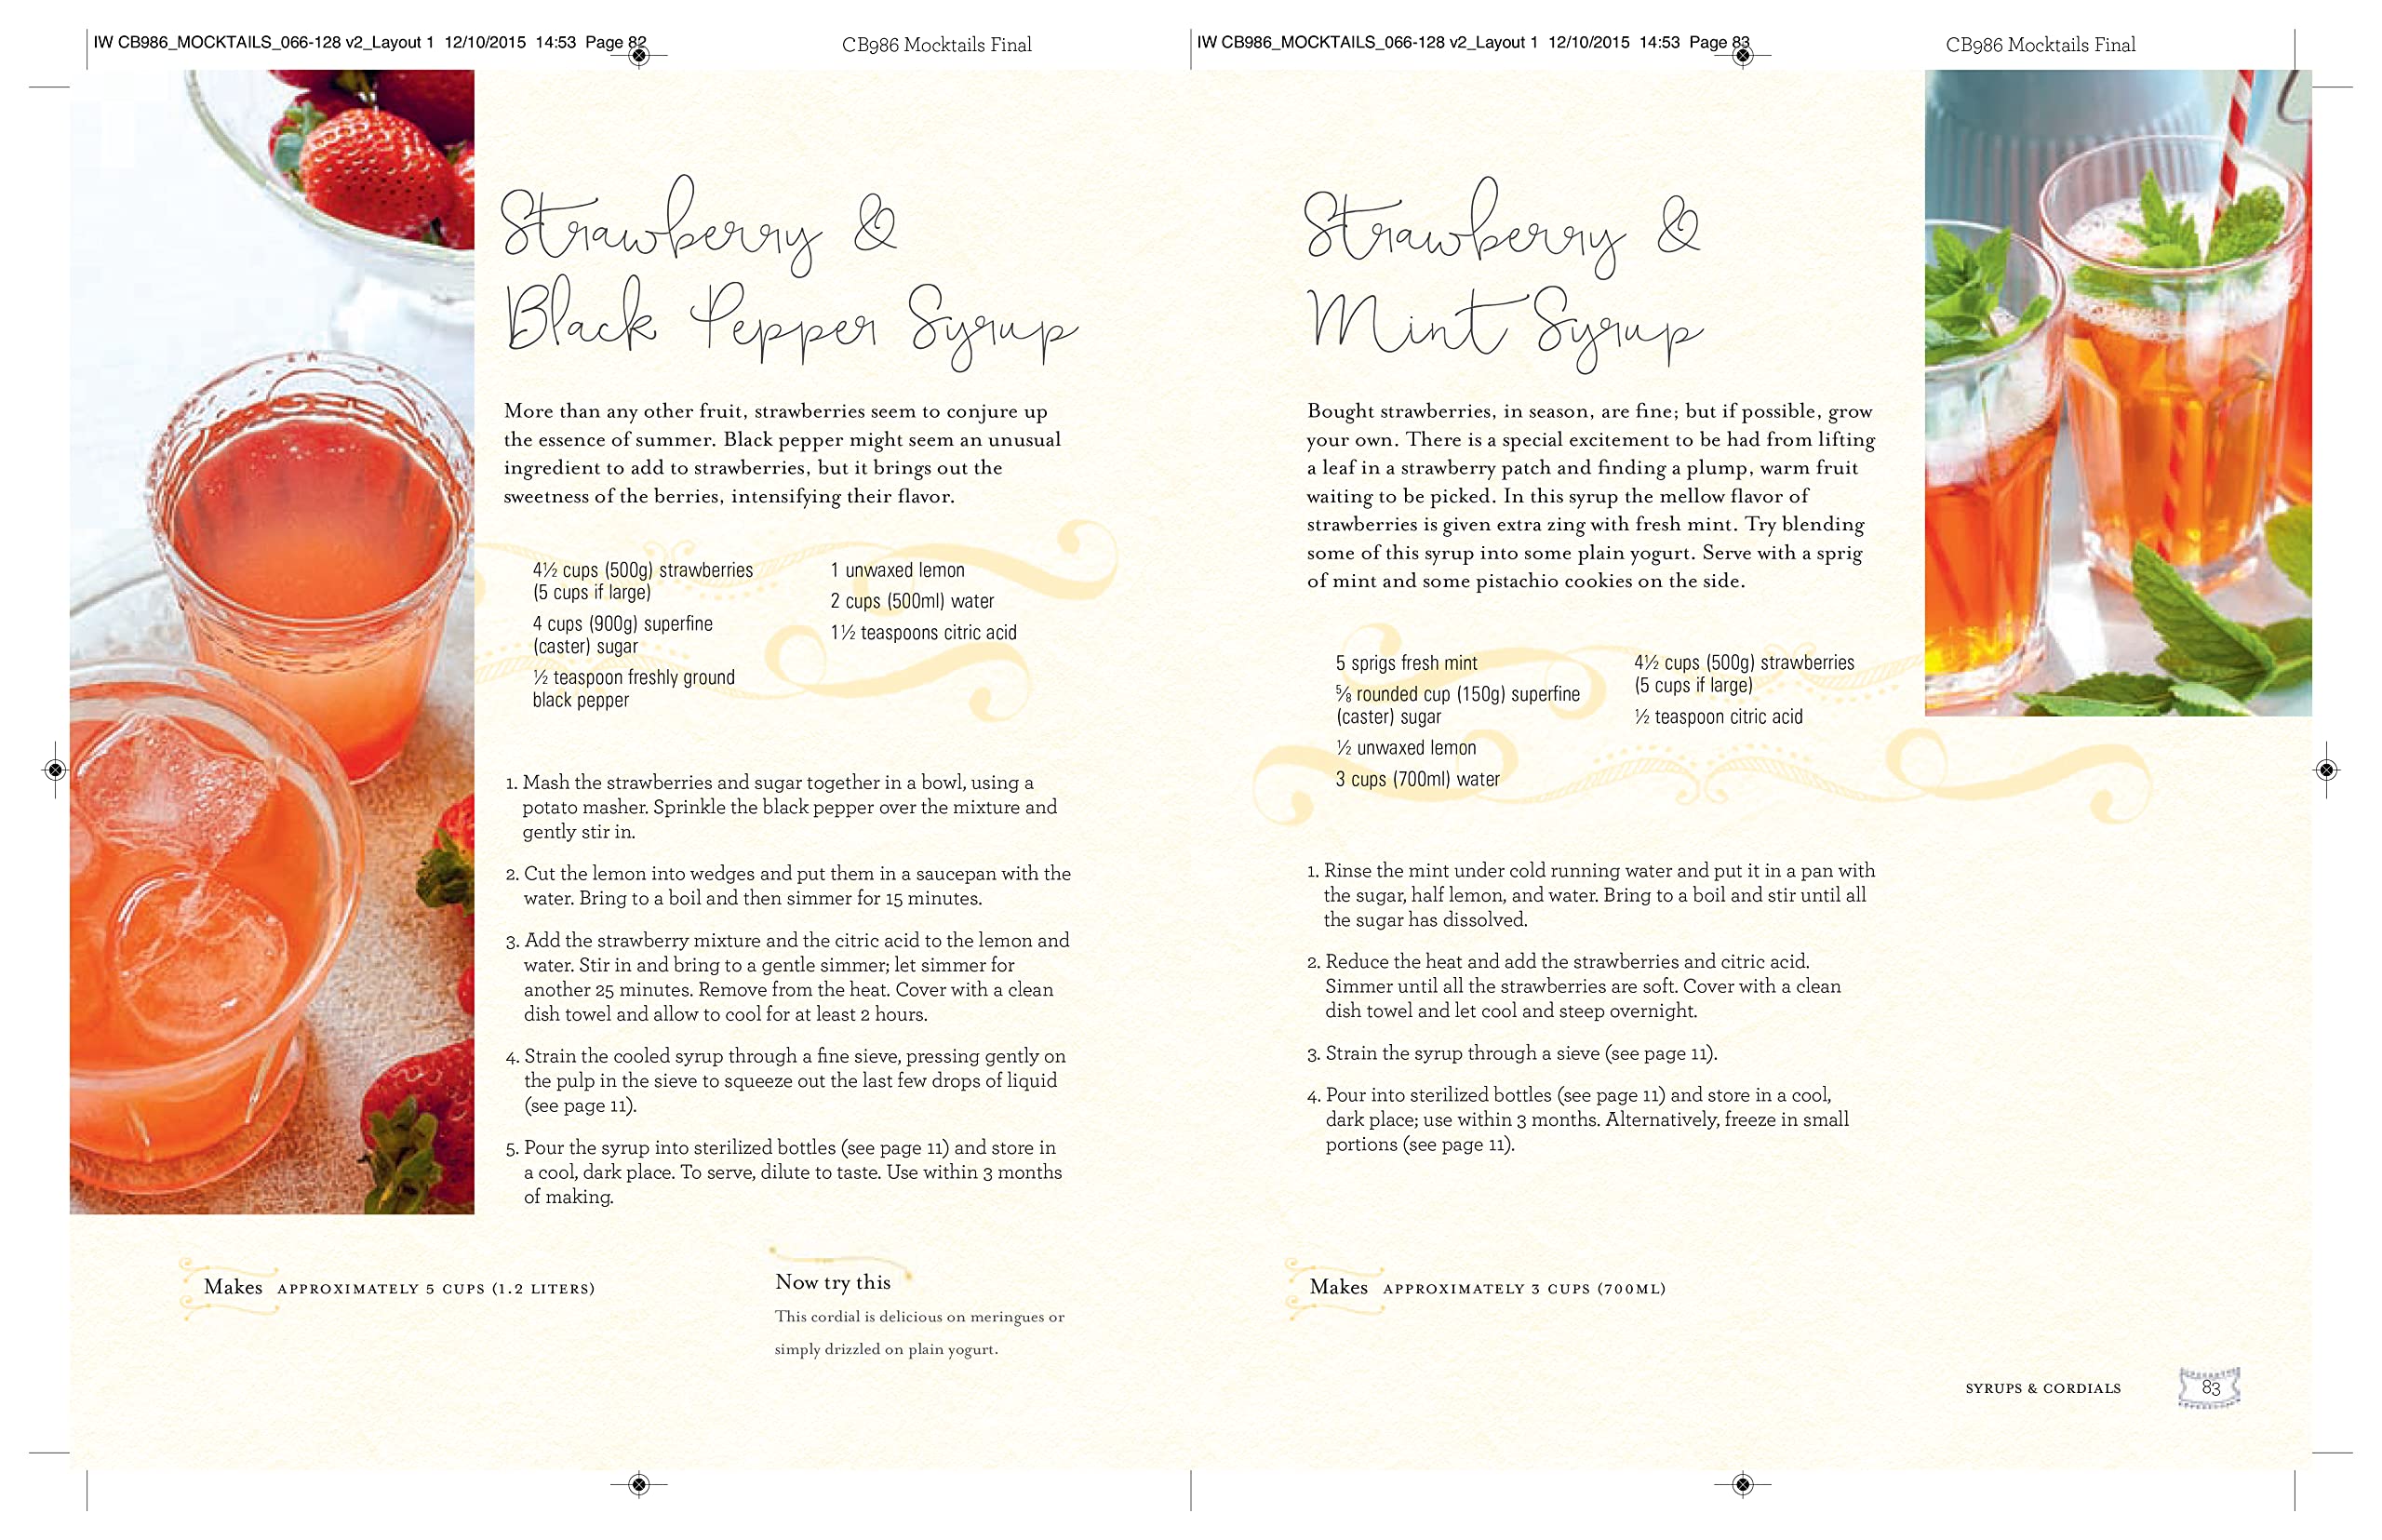 IW CB986_MOCKTAILS_066-128 v2_Layout 1 12/10/2015 14:53 Page 82
CB986 Mocktails Final
Strawberry &
Black Pepper Syrup
More than any other fruit, strawberries seem to conjure up
the essence of summer. Black pepper might seem an unusual
ingredient to add to strawberries, but it brings out the
sweetness of the berries, intensifying their flavor.
4½ cups (500g) strawberries
(5 cups if large)
4 cups (900g) superfine
(caster) sugar
½ teaspoon freshly ground
black pepper
1 unwaxed lemon
2 cups (500ml) water
1½ teaspoons citric acid
1. Mash the strawberries and sugar together in a bowl, using a
potato masher. Sprinkle the black pepper over the mixture and
gently stir in.
2. Cut the lemon into wedges and put them in a saucepan with the
water. Bring to a boil and then simmer for 15 minutes.
3. Add the strawberry mixture and the citric acid to the lemon and
water. Stir in and bring to a gentle simmer; let simmer for
another 25 minutes. Remove from the heat. Cover with a clean
dish towel and allow to cool for at least 2 hours.
4. Strain the cooled syrup through a fine sieve, pressing gently on
the pulp in the sieve to squeeze out the last few drops of liquid
(see page 11).
5. Pour the syrup into sterilized bottles (see page 11) and store in
a cool, dark place. To serve, dilute to taste. Use within 3 months
of making.
Makes APPROXIMATELY 5 CUPS (1.2 LITERS)
Now try this
This cordial is delicious on meringues or
simply drizzled on plain yogurt.
IW CB986_MOCKTAILS_066-128 v2_Layout 1 12/10/2015 14:53 Page 83
CB986 Mocktails Final
Strawberry &
Mint Syrup
Bought strawberries, in season, are fine; but if possible, grow
your own. There is a special excitement to be had from lifting
a leaf in a strawberry patch and finding a plump, warm fruit
waiting to be picked. In this syrup the mellow flavor of
strawberries is given extra zing with fresh mint. Try blending
some of this syrup into some plain yogurt. Serve with a sprig
of mint and some pistachio cookies on the side.
5 sprigs fresh mint
⅝ rounded cup (150g) superfine
(caster) sugar
½ unwaxed lemon
3 cups (700ml) water
4½ cups (500g) strawberries
(5 cups if large)
½ teaspoon citric acid
1. Rinse the mint under cold running water and put it in a pan with
the sugar, half lemon, and water. Bring to a boil and stir until all
the sugar has dissolved.
2. Reduce the heat and add the strawberries and citric acid.
Simmer until all the strawberries are soft. Cover with a clean
dish towel and let cool and steep overnight.
3. Strain the syrup through a sieve (see page 11).
4. Pour into sterilized bottles (see page 11) and store in a cool,
dark place; use within 3 months. Alternatively, freeze in small
portions (see page 11).
Makes APPROXIMATELY 3 CUPS (700ML)
SYRUPS & CORDIALS
83